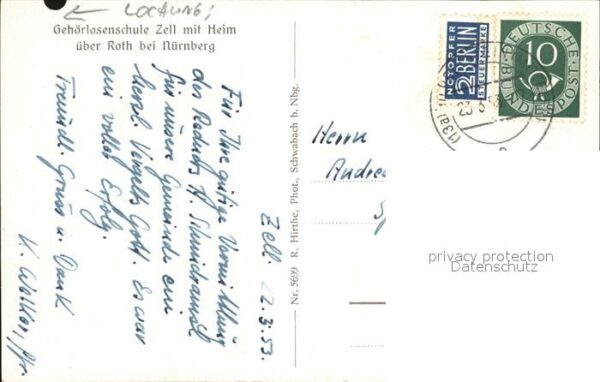 LOCHUNG!
Gehörlosenschule Zell mit Heim
über Roth bei Nürnberg
Für Ihre gütige Vermittlung
des Redners H.
für unsere Gemeinde ein
herzl. Vergelts Gott. Es war
ein voller Erfolg.
Freundl. Gruss u. Dank
Zell. 22.3.53.
Nr. 5699 R. Hirthe, Phot., Schwabach b. Nbg.
NOTOPFER
2 BERLIN
STEUERMARKE
DEUTSCHE
10
BUNDESPOST
(13a)
23
Herrn
privacy protection
Datenschutz